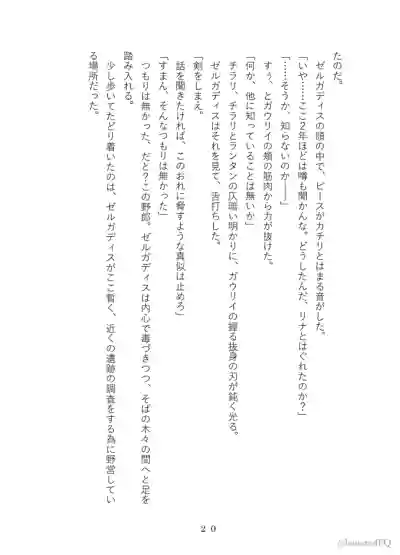 たのだ。
　ゼルガディスの頭の中で、ピースがカチリとはまる音がした。
「いや……ここ２年ほどは噂も聞かんな。どうしたんだ、リナとはぐれたのか？」
「……そうか、知らないのか――」
　すぅ、とガウリイの頬の筋肉から力が抜けた。
「何か、他に知っていることは無いか」
　チラリ、チラリとランタンの仄暗い明かりに、ガウリイの握る抜身の刃が鈍く光る。
　ゼルガディスはそれを見て、舌打ちした。
「剣をしまえ。
　話を聞きたければ、このおれに脅すような真似は止めろ」
「すまん、そんなつもりは無かった」
　つもりは無かった、だと？この野郎。ゼルガディスは内心で毒づきつつ、そばの木々の間へと足を
踏み入れる。
　少し歩いてたどり着いたのは、ゼルガディスがここ暫く、近くの遺跡の調査をする為に野営してい
る場所だった。
20